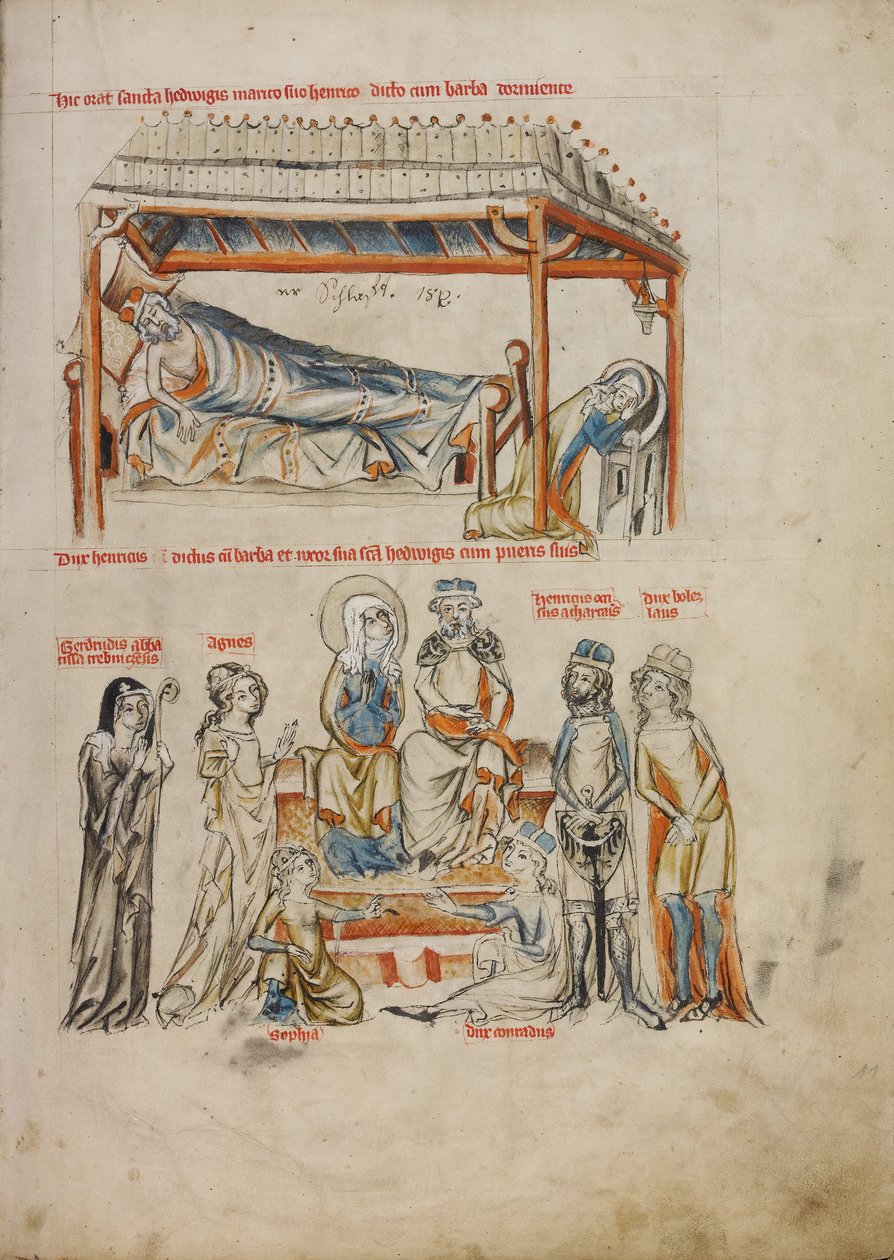 Hic orat sancta hedwigis marito suo henrico dicto cum barba dormiente
er Schlafft.
Dux henricus dictus cū barba et uxor sua scā hedwigis cum pueris suis
Gerdrudis abba
tissa trebnicensis
Agnes
Henricus occi
sus a thartaris
dux bolez
laus
Sophia
dux conradus
11